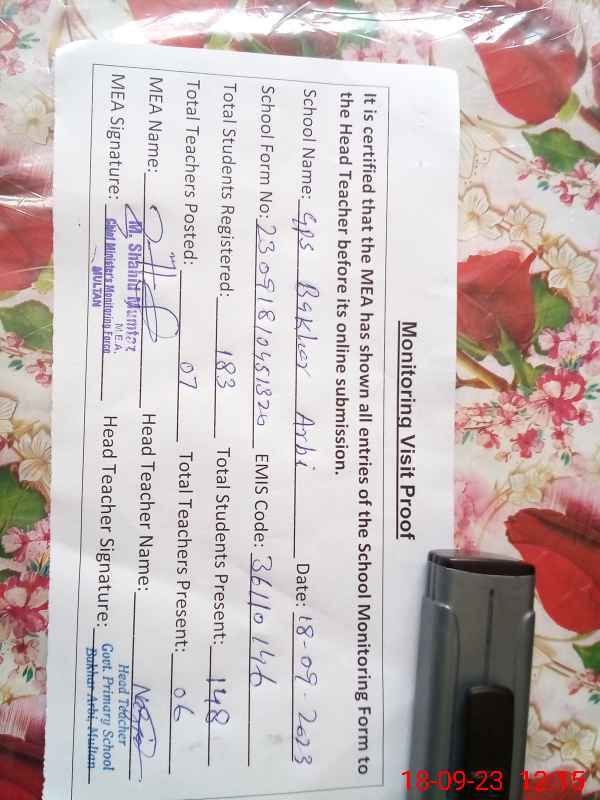 Monitoring Visit Proof
It is certified that the MEA has shown all entries of the School Monitoring Form to
the Head Teacher before its online submission.
School Name: GPS Bakhar Arbi Date: 18-09-2023
School Form No: 23091810451826 EMIS Code: 36110146
Total Students Registered: 183 Total Students Present: 148
Total Teachers Posted: 07 Total Teachers Present: 06
MEA Name: Head Teacher Name:
M. Shahid Mumtaz
M.E.A.
MEA Signature: Chief Minister's Monitoring Force
MULTAN
Head Teacher Signature:
Head Teacher
Govt. Primary School
Bukhar Arbi, Multan
18-09-23 12:15